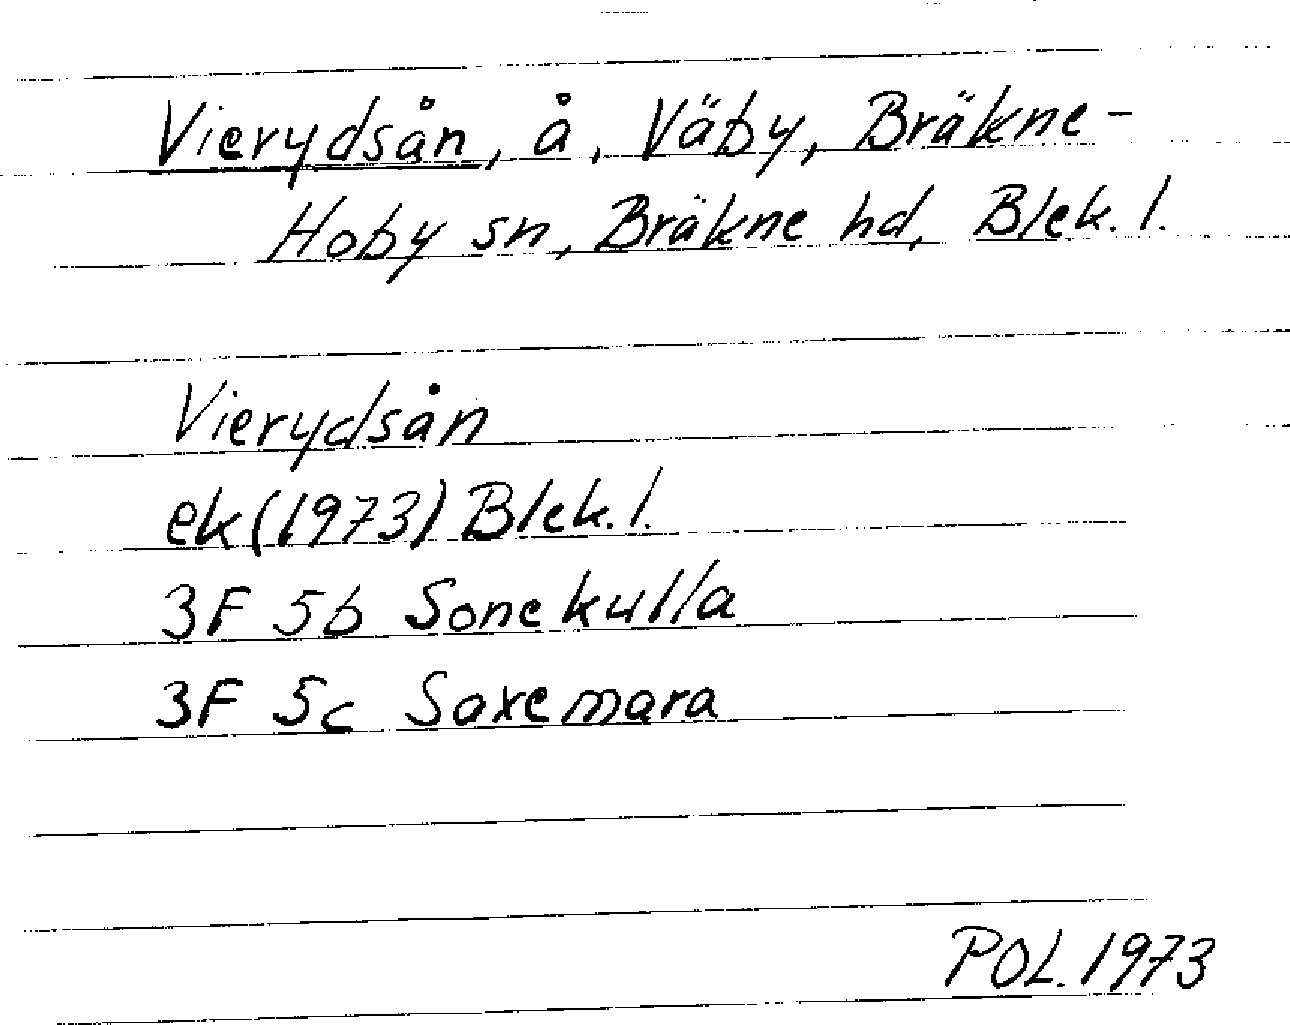 Vierydsån, å, Väby, Bräkne-
Hoby sn, Bräkne hd, Blek. l.
Vierydsån
ek(1973) Blek. l.
3F 5b Sonekulla
3F 5c Saxemara
POL. 1973